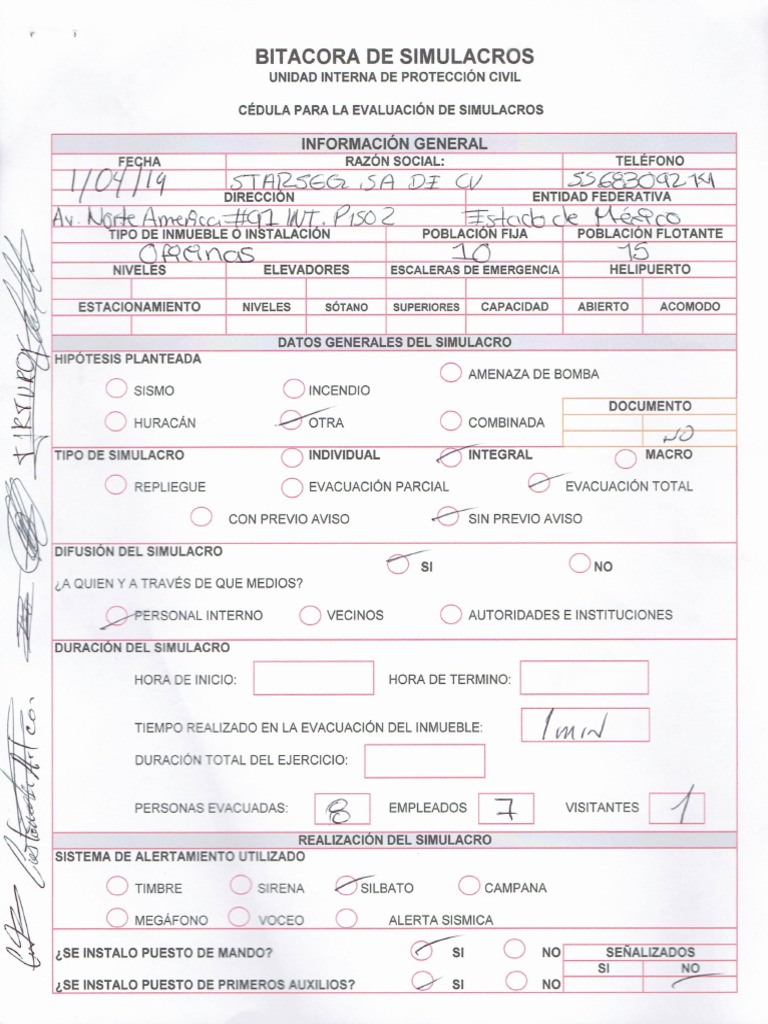 BITACORA DE SIMULACROS
UNIDAD INTERNA DE PROTECCIÓN CIVIL
CÉDULA PARA LA EVALUACIÓN DE SIMULACROS
INFORMACIÓN GENERAL
FECHA RAZÓN SOCIAL: TELÉFONO
1/04/19 STARSEG SA DE CV
DIRECCIÓN ENTIDAD FEDERATIVA
Av. Norte America #91 INT. PISO 2 Estado de México
TIPO DE INMUEBLE O INSTALACIÓN POBLACIÓN FIJA POBLACIÓN FLOTANTE
Oficinas 10 15
NIVELES ELEVADORES ESCALERAS DE EMERGENCIA HELIPUERTO
ESTACIONAMIENTO NIVELES SÓTANO SUPERIORES CAPACIDAD ABIERTO ACOMODO
DATOS GENERALES DEL SIMULACRO
HIPÓTESIS PLANTEADA
AMENAZA DE BOMBA
SISMO INCENDIO
DOCUMENTO
HURACÁN OTRA COMBINADA
NO
TIPO DE SIMULACRO INDIVIDUAL INTEGRAL MACRO
REPLIEGUE EVACUACIÓN PARCIAL EVACUACIÓN TOTAL
CON PREVIO AVISO SIN PREVIO AVISO
DIFUSIÓN DEL SIMULACRO
SI NO
¿A QUIEN Y A TRAVÉS DE QUE MEDIOS?
PERSONAL INTERNO VECINOS AUTORIDADES E INSTITUCIONES
DURACIÓN DEL SIMULACRO
HORA DE INICIO: HORA DE TERMINO:
TIEMPO REALIZADO EN LA EVACUACIÓN DEL INMUEBLE: 1 min
DURACIÓN TOTAL DEL EJERCICIO:
PERSONAS EVACUADAS: 8 EMPLEADOS 7 VISITANTES 1
REALIZACIÓN DEL SIMULACRO
SISTEMA DE ALERTAMIENTO UTILIZADO
TIMBRE SIRENA SILBATO CAMPANA
MEGÁFONO VOCEO ALERTA SISMICA
¿SE INSTALO PUESTO DE MANDO? SI NO SEÑALIZADOS
SI NO
¿SE INSTALO PUESTO DE PRIMEROS AUXILIOS? SI NO